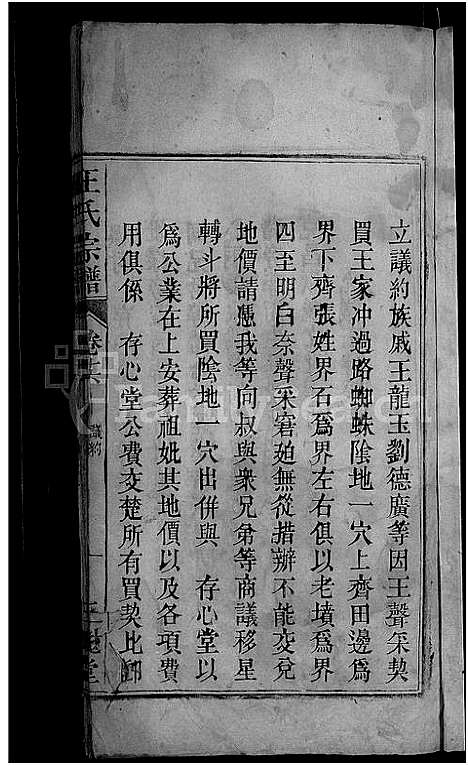 立議約族戚王龍玉劉德廣等因王聲采契
買王家冲過路蜘蛛陰地一穴上齊田邊為
界下齊張姓界石爲界左右俱以老墳爲界
四至明白奈聲采窘廹無從措辦不能交兌
地價請憑我等向叔與衆兄弟等商議移星
轉斗將所買陰地一穴出併與 存心堂以
爲公業在上安葬祖妣其地價以及各項費
用俱係 存心堂公費交楚所有買契比卽
王氏宗譜
議約
一